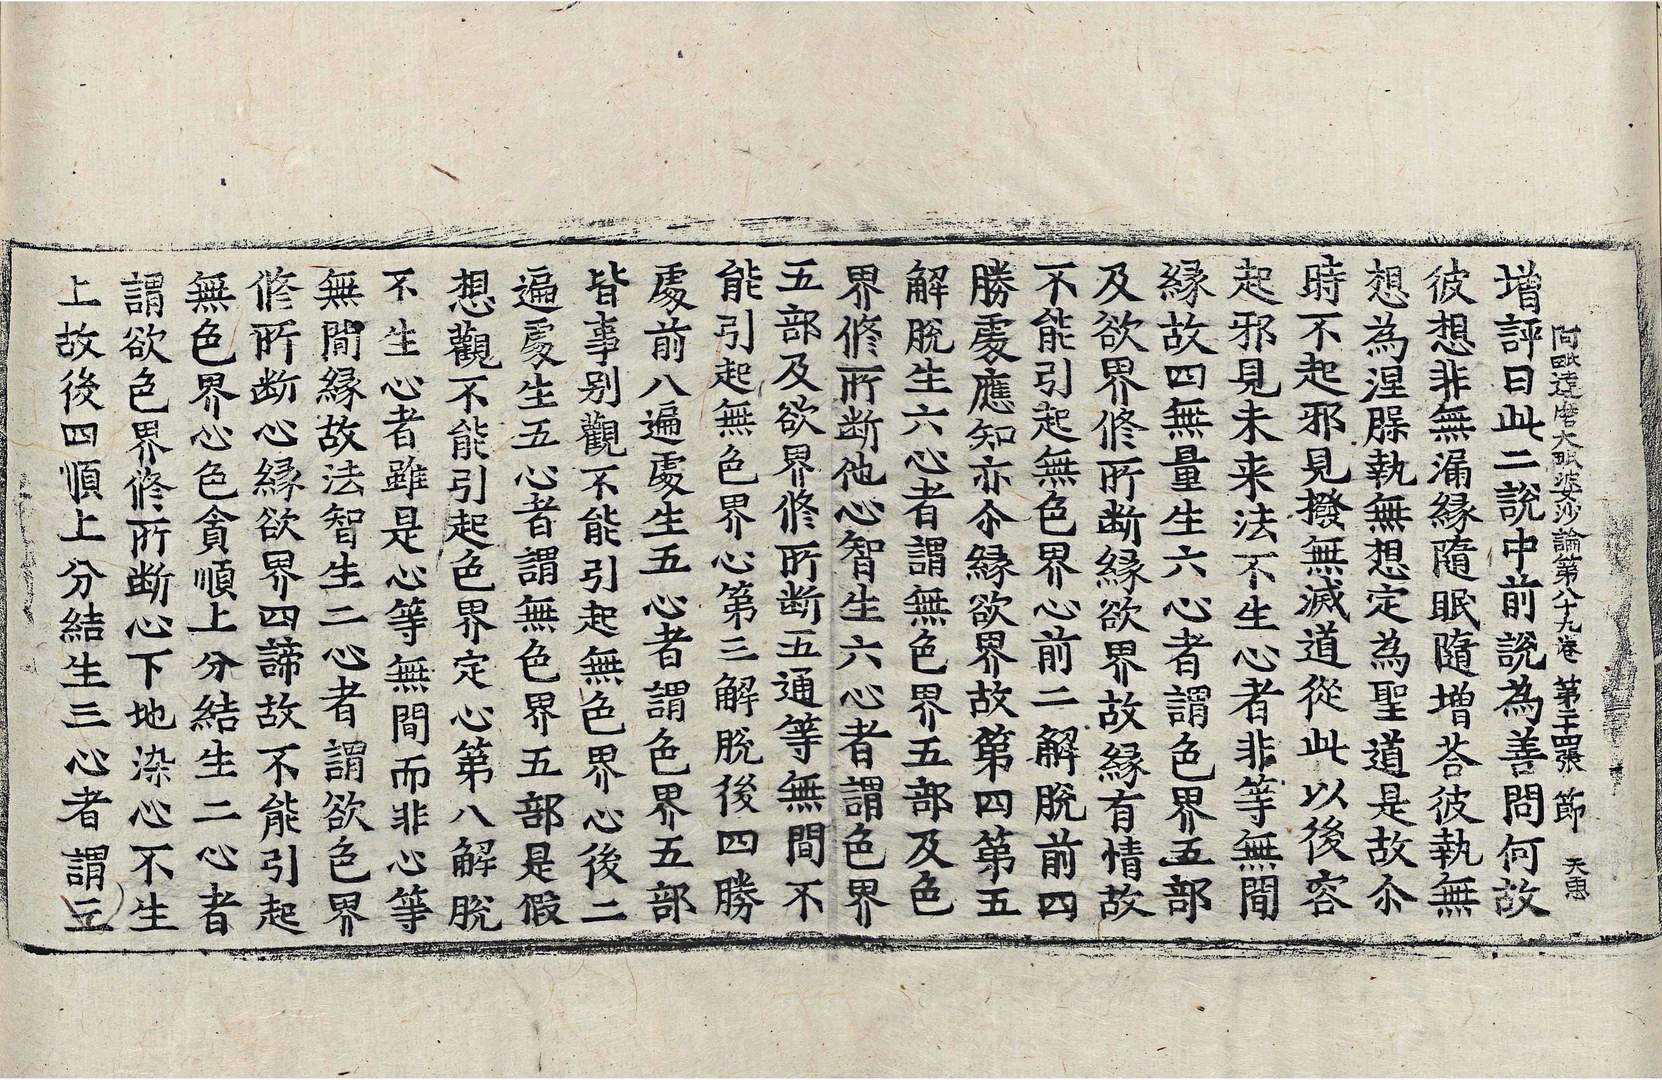 阿毗達磨大毗婆沙論第八十九卷 第二十四張 節 天惠
增評曰此二說中前說為善問何故
彼想非無漏緣隨眠隨增荅彼執無
想為涅槃執無想定為聖道是故尒
時不起邪見撥無滅道從此以後容
起邪見未来法不生心者非等無間
緣故四無量生六心者謂色界五部
及欲界修所斷緣欲界故緣有情故
不能引起無色界心前二解脫前四
勝處應知亦尒緣欲界故第四第五
解脫生六心者謂無色界五部及色
界修所斷他心智生六心者謂色界
五部及欲界修所斷五通等無間不
能引起無色界心第三解脫後四勝
處前八遍處生五心者謂色界五部
皆事別觀不能引起無色界心後二
遍處生五心者謂無色界五部是假
想觀不能引起色界定心第八解脫
不生心者雖是心等無間而非心等
無間緣故法智生二心者謂欲色界
修所斷心緣欲界四諦故不能引起
無色界心色貪順上分結生二心者
謂欲色界修所斷心下地染心不生
上故後四順上分結生三心者謂三